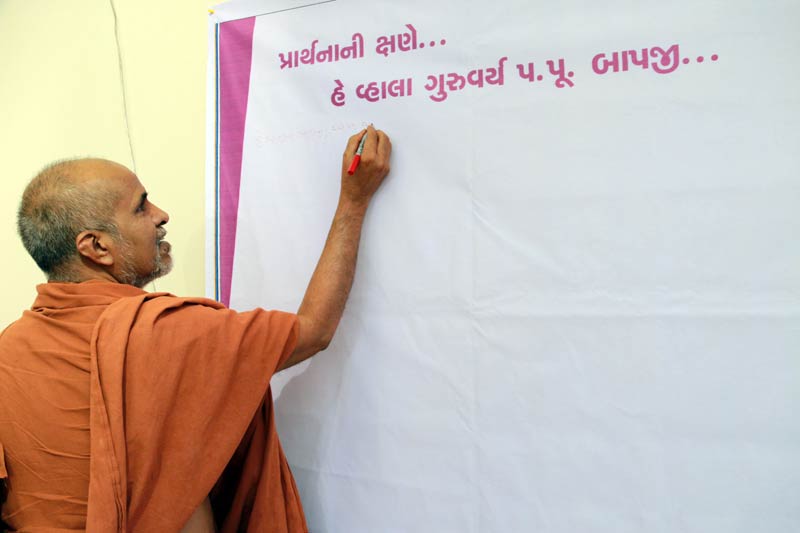 પ્રાર્થનાની ક્ષણે...
હે વ્હાલા ગુરુવર્ય પ.પૂ. બાપજી...